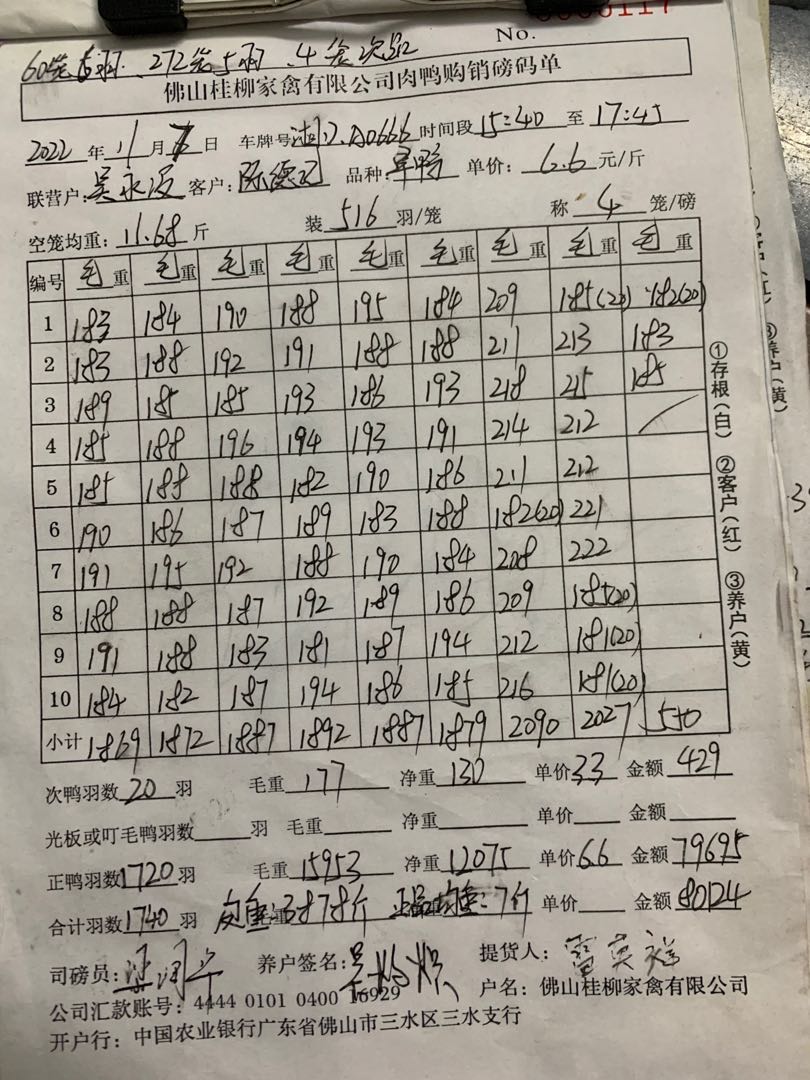 No.
60笼6羽、272笼5羽、4笼次品
佛山桂柳家禽有限公司肉鸭购销磅码单
2022 年 11 月 日 车牌号 A0666 时间段 15:40 至 17:45
联营户: 吴永 客户: 陈德 品种: 单价: 6.6 元/斤
空笼均重: 11.68 斤 装 5/6 羽/笼 称 4 笼/磅
编号 毛重 毛重 毛重 毛重 毛重 毛重 毛重 毛重 毛重
1 183 184 190 188 195 184 209 185(20) 182(20)
2 183 188 192 191 188 188 211 213 183
3 189 185 185 193 186 193 218 215 185
4 185 188 196 194 193 191 214 212
5 185 188 188 182 190 186 211 212
6 190 186 187 189 183 188 182(20) 221
7 191 195 192 188 190 184 208 222
8 188 188 187 192 189 186 209 185(20)
9 191 188 183 181 187 194 212 181(20)
10 184 182 187 194 186 185 216 181(20)
小计 1869 1872 1887 1892 1887 1879 2090 2027 550
①存根(白) ②客户(红) ③养户(黄)
次鸭羽数 20 羽 毛重 177 净重 130 单价 3.3 金额 429
光板或叮毛鸭羽数 羽 毛重 净重 单价 金额
正鸭羽数 1720 羽 毛重 15953 净重 12075 单价 6.6 金额 79695
合计羽数 1740 羽 皮重:3878斤 正品均重:7斤 单价 金额 80124
司磅员: 养户签名: 吴 提货人:
公司汇款账号: 4444 0101 0400 16929 户名: 佛山桂柳家禽有限公司
开户行: 中国农业银行广东省佛山市三水区三水支行